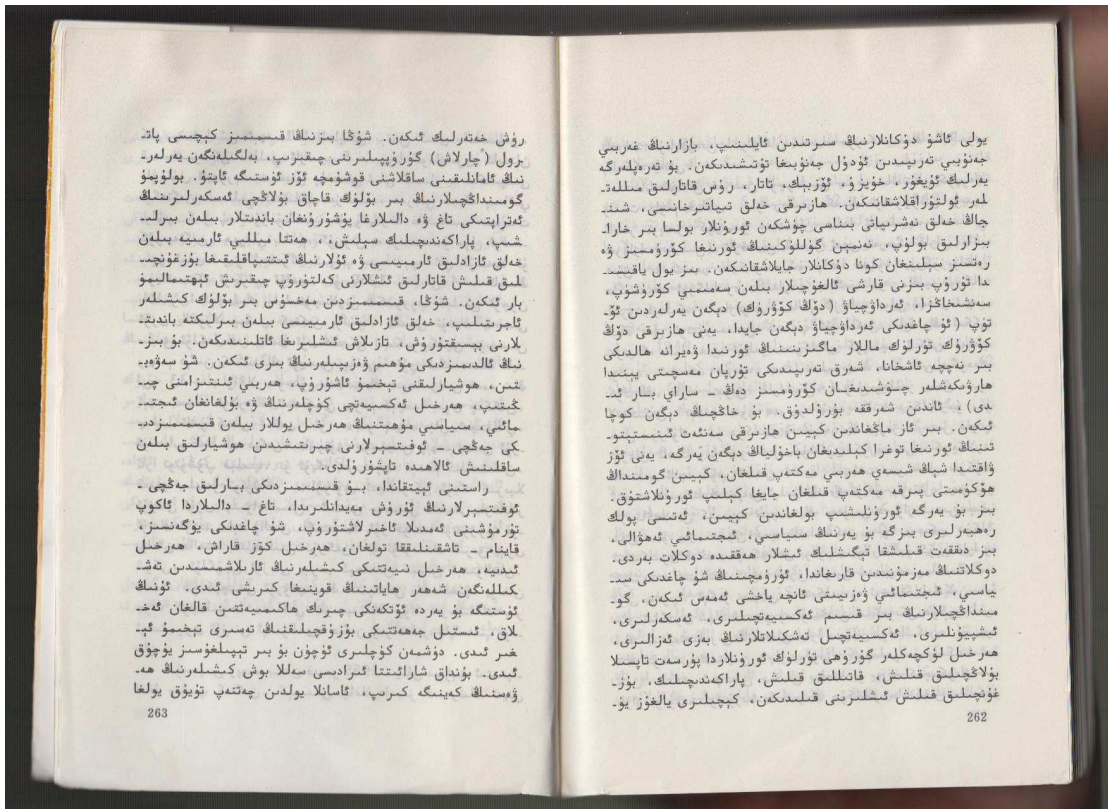 يولى ئاشۇ دۇكانلارنىڭ سىرتىدىن ئايلىنىپ، بازارنىڭ غەربىي
جەنۇبىي تەرىپىدىن ئۇدۇل جەنۇبىغا تۇتىشىدىكەن. بۇ تەرەپلەرگە
يەرلىك ئۇيغۇر، خۇيزۇ، ئۆزبېك، تاتار، رۇس قاتارلىق مىللەتـ
لەر ئولتۇراقلاشقانىكەن. ھازىرقى خەلق تىياتىرخانىسى، شىنـ
جاڭ خەلق نەشرىياتى بىناسى چۈشكەن ئورۇنلار بولسا بىر خاراـ
بىزارلىق بولۇپ، نەمېن گۈللۈكىنىڭ ئورنىغا كۆرۈمسىز ۋە
رەتسىز سېلىنغان كونا دۇكانلار جايلاشقانىكەن. بىز يول ياقىسىـ
دا تۇرۇپ بىزنى قارشى ئالغۇچىلار بىلەن سەمىمىي كۆرۈشۈپ،
سەنشىخاڭزا، ئەرداۋچياۋ (دۆڭ كۆۋرۈك) دېگەن يەرلەردىن ئۆـ
تۈپ (ئۇ چاغدىكى ئەرداۋچياۋ دېگەن جايدا، يەنى ھازىرقى دۆڭ
كۆۋرۈك تۈرلۈك ماللار ماگىزىنىنىڭ ئورنىدا ۋەيرانە ھالدىكى
بىر نەچچە ئاشخانا، شەرق تەرىپىدىكى تۇرپان مەسچىتى يېنىدا
ھارۋىكەشلەر چۈشىدىغان كۆرۈمسىز دەڭ ـ ساراي بار ئىـ
دى)، ئاندىن شەرققە بۇرۇلدۇق. بۇ خاڭچىڭ دېگەن كوچا
ئىكەن. بىر ئاز ماڭغاندىن كېيىن ھازىرقى سەنئەت ئىنىستىتوـ
تىنىڭ ئورنىغا توغرا كېلىدىغان باخۇلياڭ دېگەن يەرگە، يەنى ئۆز
ۋاقتىدا شېڭ شىسەي ھەربىي مەكتەپ قىلغان، كېيىن گومىنداڭ
ھۆكۈمىتى پىرقە مەكتەپ قىلغان جايغا كېلىپ ئورۇنلاشتۇق.
بىز بۇ يەرگە ئورۇنلىشىپ بولغاندىن كېيىن، ئەتىسى پولك
رەھبەرلىرى بىزگە بۇ يەرنىڭ سىياسىي، ئىجتىمائىي ئەھۋالى،
بىز دىققەت قىلىشقا تېگىشلىك ئىشلار ھەققىدە دوكلات بەردى.
دوكلاتنىڭ مەزمۇنىدىن قارىغاندا، ئۈرۈمچىنىڭ شۇ چاغدىكى سىـ
ياسىي، ئىجتىمائىي ۋەزىيىتى ئانچە ياخشى ئەمەس ئىكەن. گوـ
مىنداڭچىلارنىڭ بىر قىسىم ئەكسىيەتچىلىرى، ئەسكەرلىرى،
ئىشپىيۇنلىرى، ئەكسىيەتچىل تەشكىلاتلارنىڭ بەزى ئەزالىرى،
ھەرخىل لۈكچەكلەر گۇرۇھى تۈرلۈك ئورۇنلاردا پۇرسەت تاپسىلا
بۇلاڭچىلىق قىلىش، قاتىللىق قىلىش، پاراكەندىچىلىك، بۇزـ
غۇنچىلىق قىلىش ئىشلىرىنى قىلىدىكەن، كېچىلىرى يالغۇز يۈـ
262
رۈش خەتەرلىك ئىكەن. شۇڭا بىزنىڭ قىسمىمىز كېچىسى پاتـ
رول (چارلاش) گۇرۇپپىلىرىنى چىقىرىپ، بەلگىلەنگەن يەرلەرـ
نىڭ ئامانلىقىنى ساقلاشنى قوشۇمچە ئۆز ئۈستىگە ئاپتۇ. بولۇپمۇ
گومىنداڭچىلارنىڭ بىر بۆلۈك قاچاق بۇلاڭچى ئەسكەرلىرىنىڭ
ئەتراپتىكى تاغ ۋە دالىلارغا يۇشۇرۇنغان باندىتلار بىلەن بىرلىـ
شىپ، پاراكەندىچىلىك سېلىش، ھەتتا مىللىي ئارمىيە بىلەن
خەلق ئازادلىق ئارمىيىسى ۋە ئۇلارنىڭ ئىتتىپاقلىقىغا بۇزغۇنچىـ
لىق قىلىش قاتارلىق ئىشلارنى كەلتۈرۈپ چىقىرىش ئېھتىمالىمۇ
بار ئىكەن. شۇڭا، قىسمىمىزدىن مەخسۇس بىر بۆلۈك كىشىلەر
ئاجرىتىلىپ، خەلق ئازادلىق ئارمىيىسى بىلەن بىرلىكتە باندىتـ
لارنى بېسىقتۇرۇش، تازىلاش ئىشلىرىغا ئاتلىنىدىكەن. بۇ بىزـ
نىڭ ئالدىمىزدىكى مۇھىم ۋەزىپىلەرنىڭ بىرى ئىكەن. شۇ سەۋەبـ
تىن، ھوشيارلىقنى تېخىمۇ ئاشۇرۇپ، ھەربىي ئىنتىزامنى چىـ
ڭىتىپ، ھەرخىل ئەكسىيەتچى كۈچلەرنىڭ ۋە بۇلغانغان ئىجتىـ
مائىي، سىياسىي مۇھىتنىڭ ھەرخىل يوللار بىلەن قىسمىمىزدىـ
كى جەڭچى ـ ئوفىتسېرلارنى چىرىتىشىدىن ھوشيارلىق بىلەن
ساقلىنىش ئالاھىدە تاپشۇرۇلدى.
راستىنى ئېيتقاندا، بۇ قىسمىمىزدىكى بارلىق جەڭچى ـ
ئوفىتسېرلارنىڭ ئۇرۇش مەيدانلىرىدا، تاغ ـ دالىلاردا ئاكوپ
تۇرمۇشىنى ئەمدىلا ئاخىرلاشتۇرۇپ، شۇ چاغدىكى يۈگەنسىز،
قاينام ـ تاشقىنلىققا تولغان، ھەرخىل كۆز قاراش، ھەرخىل
ئىدىيە، ھەرخىل نىيەتتىكى كىشىلەرنىڭ ئارىلاشمىسىدىن تەشـ
كىللەنگەن شەھەر ھاياتىنىڭ قوينىغا كىرىشى ئىدى. ئۇنىڭ
ئۈستىگە بۇ يەردە ئۆتكەنكى چىرىك ھاكىمىيەتتىن قالغان ئەخـ
لاق، ئىستىل جەھەتتىكى بۇزۇقچىلىقنىڭ تەسىرى تېخىمۇ ئېـ
غىر ئىدى. دۈشمەن كۈچلىرى ئۈچۈن بۇ بىر تېپىلغۇسىز يوچۇق
ئىدى. بۇنداق شارائىتتا ئىرادىسى سەللا بوش كىشىلەرنىڭ ھەـ
ۋەسنىڭ كەينىگە كىرىپ، ئاسانلا يولدىن چەتنەپ تۇيۇق يولغا
263